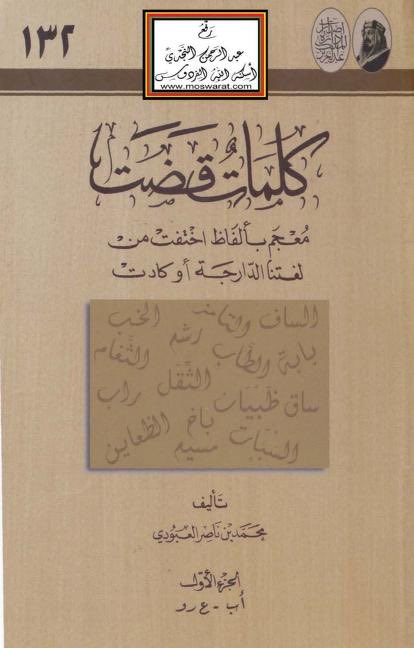 ١٣٢
رفع
عبد الرحمن النجدي
أسكنه الله الفردوس
www.moswarat.com
كلمات قضت
معجم بألفاظ اختفت من
لغتنا الدارجة أو كادت
الساف
الخب
رشم
بابة الطاب
الثقل
ساق ظبيان
راب
باخ
الظعاين
السبات
مسيم
تأليف
محمد بن ناصر العبودي
الجزء الأول
أب - ع رو